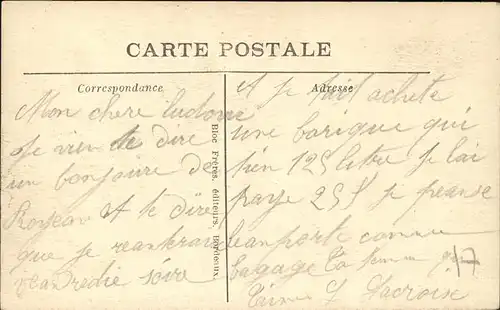 CARTE POSTALE
Correspondance
Adresse
Mon chere ludovic
je vien te dire
un bonjoure de
Royean et te dire
que je rentrerai
vendredie soire
Bloc Frères, éditeurs, Bordeaux
et je achete
une barique qui
tien 125 litre je lai
paye 25 f je pense
lenporte comme
bagage Ta femme qui
t'aime L Lacroix
17